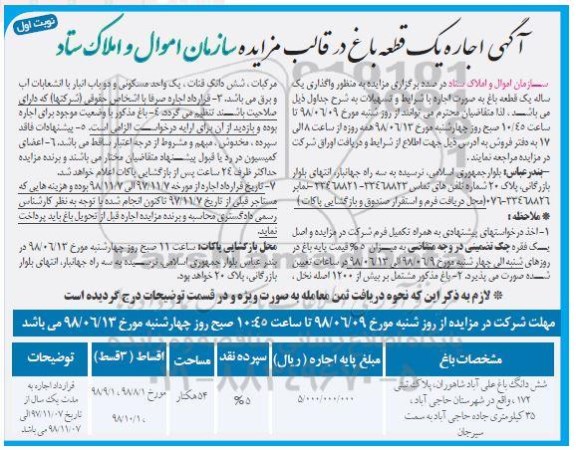 نوبت اول
آگهی اجاره یک قطعه باغ در قالب مزایده سازمان اموال و املاک ستاد
سازمان اموال و املاک ستاد در صدد برگزاری مزایده به منظور واگذاری یک
ساله یک قطعه باغ به صورت اجاره با شرایط و تسهیلات به شرح جداول ذیل
می باشد، لذا متقاضیان محترم می توانند از روز شنبه مورخ ۹۸/۰۶/۰۹ تا
ساعت ۱۰:۴۵ صبح روز چهارشنبه مورخ ۹۸/۰۶/۱۳ همه روزه از ساعت ۸ الی
۱۷ به دفتر فروش به آدرس ذیل جهت اطلاع از شرایط و دریافت اوراق شرکت
در مزایده مراجعه نمایند.
–بندرعباس: بلوار جمهوری اسلامی، نرسیده به سه راه جهانبار، انتهای بلوار
بازرگانی، پلاک ۲۰ شماره تلفن های تماس ۳۲۴۶۸۸۲۳–۳۲۴۶۸۸۲۱–نمابر
(محل دریافت فرم و استقرار صندوق و بازگشایی پاکات)
* ملاحظه:
۱- اخذ درخواستهای پیشنهادی به همراه تکمیل فرم شرکت در مزایده و اصل
یک فقره چک تضمینی در وجه متقاضی به میزان ۵% قیمت پایه باغ در
روزهای شنبه الی چهارشنبه مورخ ۹۸/۰۶/۰۹ الی ۹۸/۰۶/۱۳ در ساعات تعیین
شده صورت می پذیرد. ۲- باغ مذکور مشتمل بر بیش از ۱۲۰۰ اصله نخل،
مرکبات، شش دانگ قنات، یک واحد مسکونی و دو باب انبار با انشعابات آب
و برق می باشد. ۳- قرارداد اجاره صرفا با اشخاص حقوقی (شرکتها) که دارای
صلاحیت باشند تنظیم می گردد. ۴- باغ مذکور با وضعیت موجود برای اجاره
بوده و بازدید از آن برای ارایه درخواست الزامی است. ۵- پیشنهادات فاقد
سپرده، مخدوش، مبهم و مشروط از درجه اعتبار ساقط می باشد. ۶- اعضای
کمیسیون در رد یا قبول پیشنهاد متقاضیان مختار می باشند و برنده مزایده
حداکثر ظرف ۲۴ ساعت پس از بازگشایی پاکات اعلام خواهد شد.
۷- تاریخ قرارداد اجاره از مورخه ۹۷/۱۱/۷ الی ۹۸/۱۱/۷ بوده و هزینه هایی که
مستاجر قبلی از تاریخ ۹۷/۱۱/۷ تاکنون انجام شده با توجه به نظر کارشناس
رسمی دادگستری محاسبه و برنده مزایده اجاره قبل از تحویل باغ باید پرداخت
نماید.
محل بازگشایی پاکات: ساعت ۱۱ صبح روز چهارشنبه مورخ ۹۸/۰۶/۱۳ در
بندر عباس بلوار جمهوری اسلامی، نرسیده به سه راه جهانبار، انتهای بلوار
بازرگانی، پلاک ۲۰ خواهد بود.
* لازم به ذکر این که نحوه دریافت ثمن معامله به صورت ویژه و در قسمت توضیحات درج گردیده است
مهلت شرکت در مزایده از روز شنبه مورخ ۹۸/۰۶/۰۹ تا ساعت ۱۰:۴۵ صبح روز چهارشنبه مورخ ۹۸/۰۶/۱۳ می باشد
مشخصات باغ مبلغ پایه اجاره (ریال) سپرده نقد مساحت اقساط (۳قسط) توضیحات
شش دانگ باغ علی آباد شاهوران، پلاک ثبتی
۱۷۲، واقع در شهرستان حاجی آباد،
۳۵ کیلومتری جاده حاجی آباد به سمت
سیرجان
۵/۰۰۰/۰۰۰/۰۰۰
۵%
۵۴هکتار
مورخ ۹۸/۸/۱، ۹۸/۹/۱،
۹۸/۱۰/۱
قرارداد اجاره به
مدت یک سال از
تاریخ ۹۷/۱۱/۰۷الی
۹۸/۱۱/۰۷ می باشد